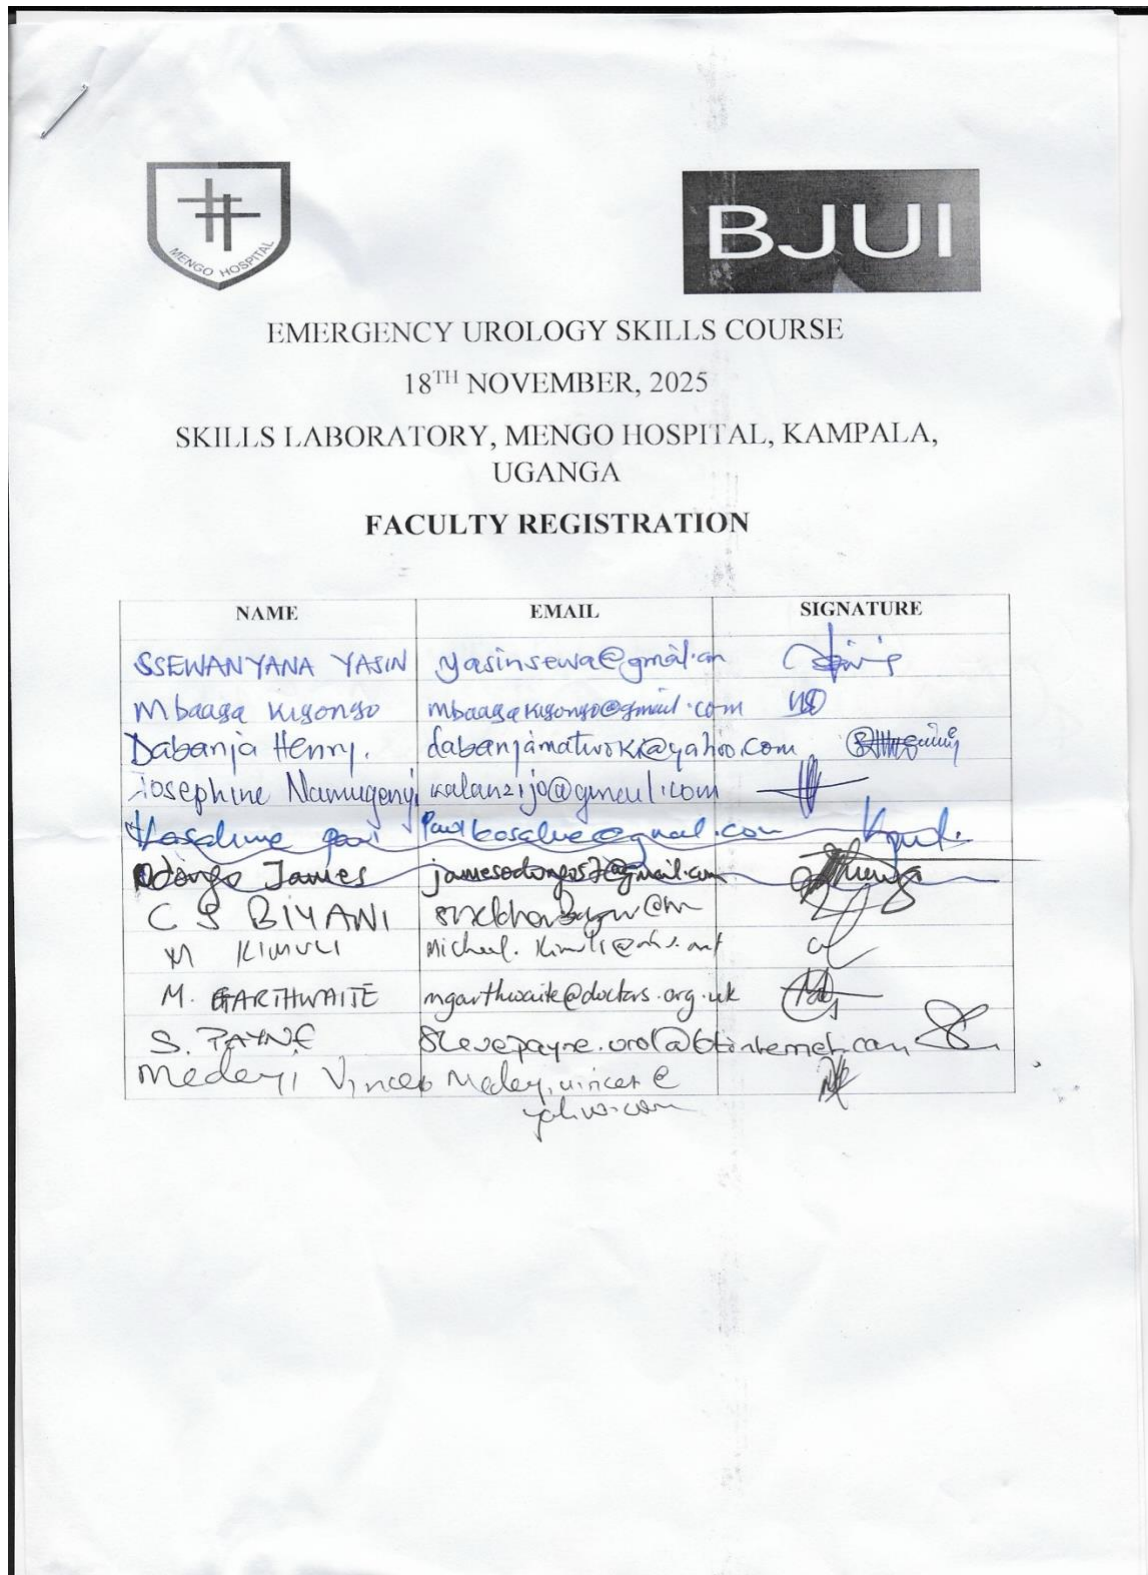 MENGO HOSPITAL
BJUI
EMERGENCY UROLOGY SKILLS COURSE
18TH NOVEMBER, 2025
SKILLS LABORATORY, MENGO HOSPITAL, KAMPALA,
UGANGA
FACULTY REGISTRATION
NAME EMAIL SIGNATURE
SSEWANYANA YASIN yasinsewa@gmail.com
Mbaaga Kisongo mbaagakisongo@gmail.com
Dabanja Henry. dabanjamatwoki@yahoo.com
Josephine Namugenyi kalanzijo@gmail.com
James
C S BIYANI
M KIMULI
M. GARTHWAITE mgarthwaite@doctors.org.uk
S. PAYNE stevepayne.urol@btinternet.com
Medeyi
yahoo.com